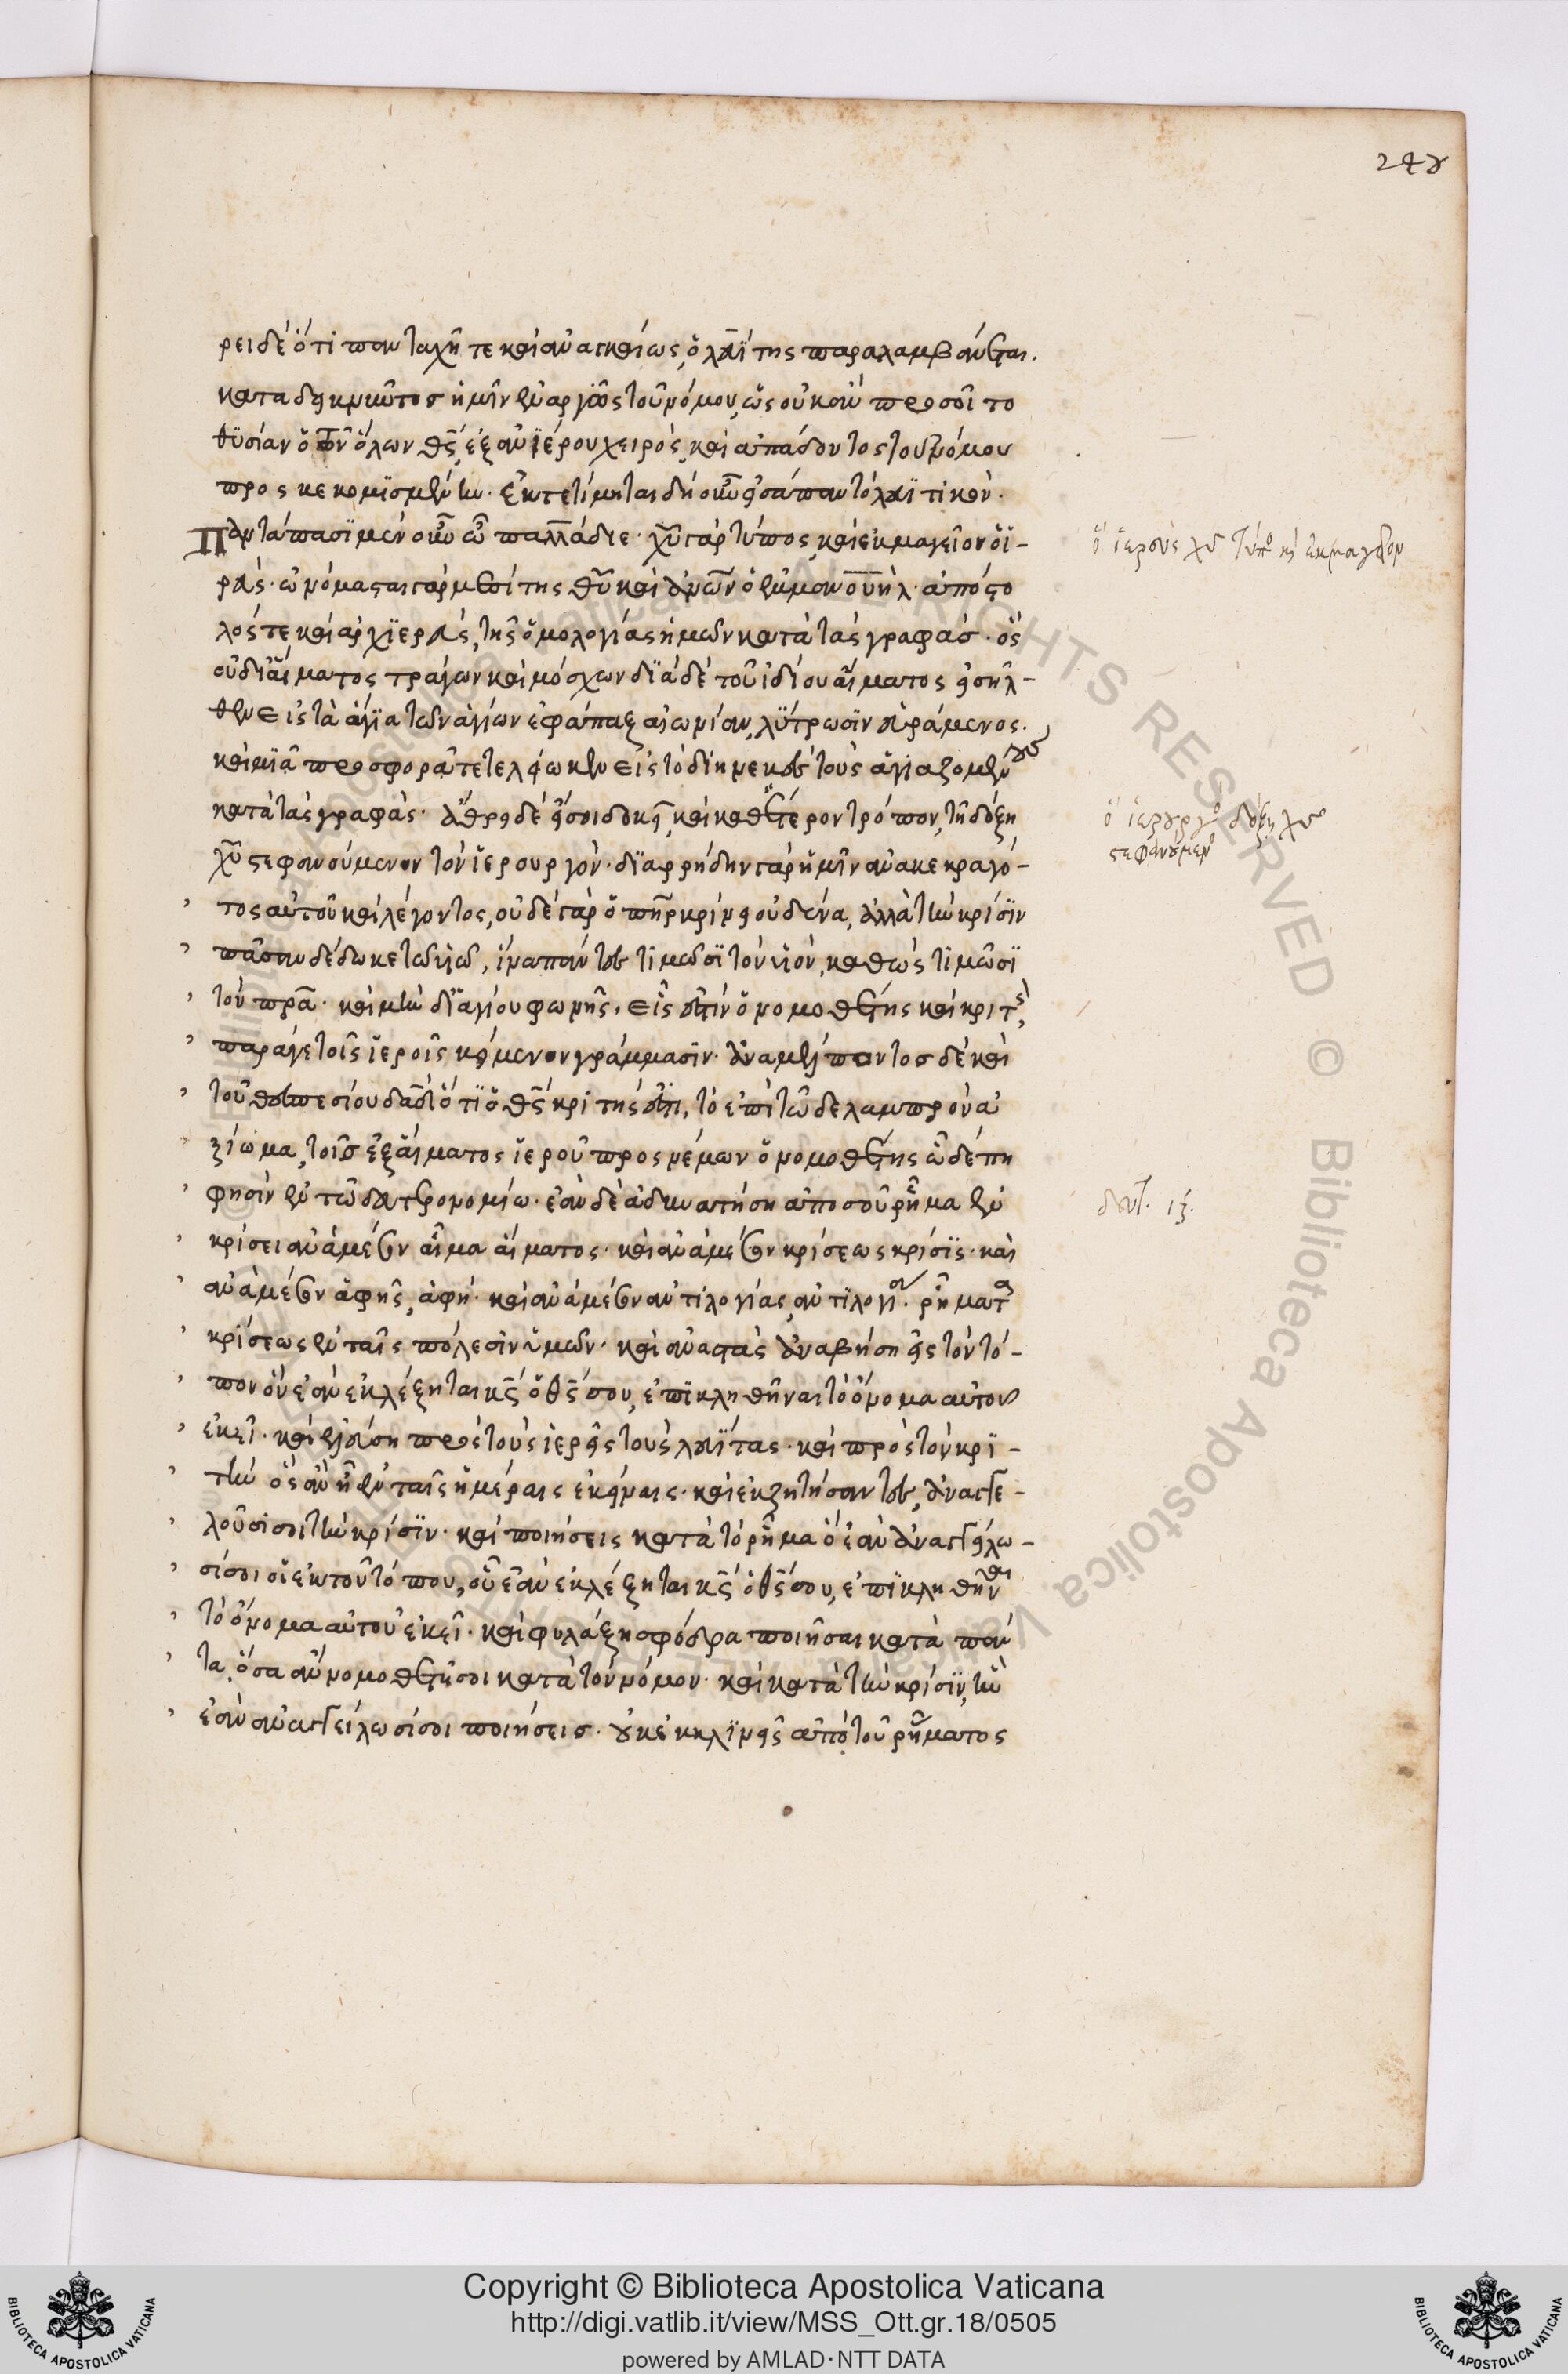 248
ρει δὲ ὅτι πανταχῆ τε καὶ ἀναγκαίως, ὁ λευΐτης παραλαμβάνεται.
καταδεικνύντος ἡμῖν ἐναργῶς τοῦ νόμου, ὡς οὐκ ἂν προσοῖτο
θυσίαν ὁ τῶν ὅλων θς, ἐξ ἀνιέρου χειρὸς, καὶ ἀπάδοντος τοῦ νόμου
προσκεκομισμένην. ἐκτετίμηται δὴ οὖν εἰσάπαν τὸ λευϊτικὸν.
Πανταπασὶ μὲν οὖν ὦ παλλάδιε. χῦ γὰρ τύπος, καὶ ἐκμαγεῖον ὁ ἱ-
ρεύς. ὠνόμασται γὰρ μεσίτης θῦ καὶ ἀνῶν ὁ ἐμμανουὴλ. ἀπόστο
λός τε καὶ ἀρχιερεὺς, τῆς ὁμολογίας ἡμῶν κατὰ τὰς γραφάς. ὃς
οὐ δι αἵματος τράγων καὶ μόσχων διὰ δὲ τοῦ ἰδίου αἵματος εἰσῆλ-
θεν εἰς τὰ ἅγια τῶν ἁγίων ἐφάπαξ αἰωνίαν, λύτρωσιν εὑράμενος.
καὶ μιᾶ προσφορᾶ τετελείωκεν εἰς τὸ διηνεκὲς τοὺς ἁγιαζομένους
κατὰ τὰς γραφὰς. ἄθρει δὲ εἴ σοι δοκεῖ, καὶ καθ ἕτερον τρόπον, τῆ δόξη
χῦ στεφανούμενον τὸν ἱερουργὸν. διαρρήδην γὰρ ἡμῖν ἀνακεκραγό-
τος αὐτοῦ καὶ λέγοντος, οὐδὲ γὰρ ὁ πὴρ κρίνει οὐδένα, ἀλλὰ τὴν κρίσιν
πᾶσαν δέδωκε τῶ υἱῶ, ἵνα πάντες τιμῶσι τὸν υἱὸν, καθὼς τιμῶσι
τὸν πρα. καὶ μὴν δι ἁγίου φωνῆς, εἷς ἐστὶν ὁ νομοθέτης καὶ κριτὴς,
παρά γε τοῖς ἱεροῖς κείμενον γράμμασιν. ἀναμέλποντος δὲ καὶ
τοῦ θεσπεσίου δαδ ὅτι ὁ θς κριτής ἐστι, τὸ ἐπὶ τῶδε λαμπρὸν ἀ
ξίωμα, τοῖς ἐξ αἵματος ἱεροῦ προσνέμων ὁ νομοθέτης ὧδέ πη
φησὶν ἐν τῶ δευτερονομίω. ἐὰν δὲ ἀδυνατήση ἀπὸ σοῦ ρῆμα ἐν
κρίσει ἀνάμεσον αἷμα αἵματος. καὶ ἀνάμεσον κρίσεως κρίσις. καὶ
ἀνάμεσον ἁφῆς, ἁφή. καὶ ἀνάμεσον ἀντιλογίας, ἀντιλογία. ρήματα
κρίσεως ἐν ταῖς πόλεσιν ὑμῶν. καὶ ἀναστὰς ἀναβήση εἰς τὸν τό-
πον ὃν ἐὰν ἐκλέξηται κς ὁ θς σου, ἐπικληθῆναι τὸ ὄνομα αὐτοῦ
ἐκεῖ. καὶ ἐλεύση πρὸς τοὺς ἱερεῖς τοὺς λευΐτας. καὶ πρὸς τὸν κρι-
τὴν ὃς ἂν ἦ ἐν ταῖς ἡμέραις ἐκείναις. καὶ ἐκζητήσαντες, ἀναγγε-
λοῦσί σοι τὴν κρίσιν. καὶ ποιήσεις κατὰ τὸ ρῆμα ὃ ἐὰν ἀναγγείλω-
σί σοι οἱ ἐκ τοῦ τόπου, οὗ ἐὰν ἐκλέξηται κς ὁ θς σου, ἐπικληθῆναι
τὸ ὄνομα αὐτοῦ ἐκεῖ. καὶ φυλάξη σφόδρα ποιῆσαι κατὰ πάν
τα, ὅσα ἂν νομοθετῆ σοι κατὰ τὸν νόμον. καὶ κατὰ τὴν κρίσιν, ἣν
ἐὰν ἀναγγείλωσί σοι ποιήσεις. οὐκ ἐκκλινεῖς ἀπὸ τοῦ ρήματος
ὁ ἱερεὺς χυ τύπος καὶ ἐκμαγεῖον
ὁ ἱερουργὸς δόξη χυ
στεφανούμενος
δευτ. ιζ.
Copyright © Biblioteca Apostolica Vaticana
http://digi.vatlib.it/view/MSS_Ott.gr.18/0505
powered by AMLAD·NTT DATA